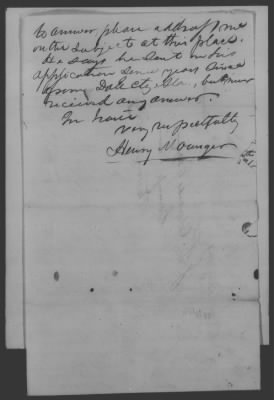 to answer please address me
on the subject at this place.
He says he sent on his
application some years since
from Dale Cty, Ala, but never
received any answer.
In haste
very respectfully
Henry